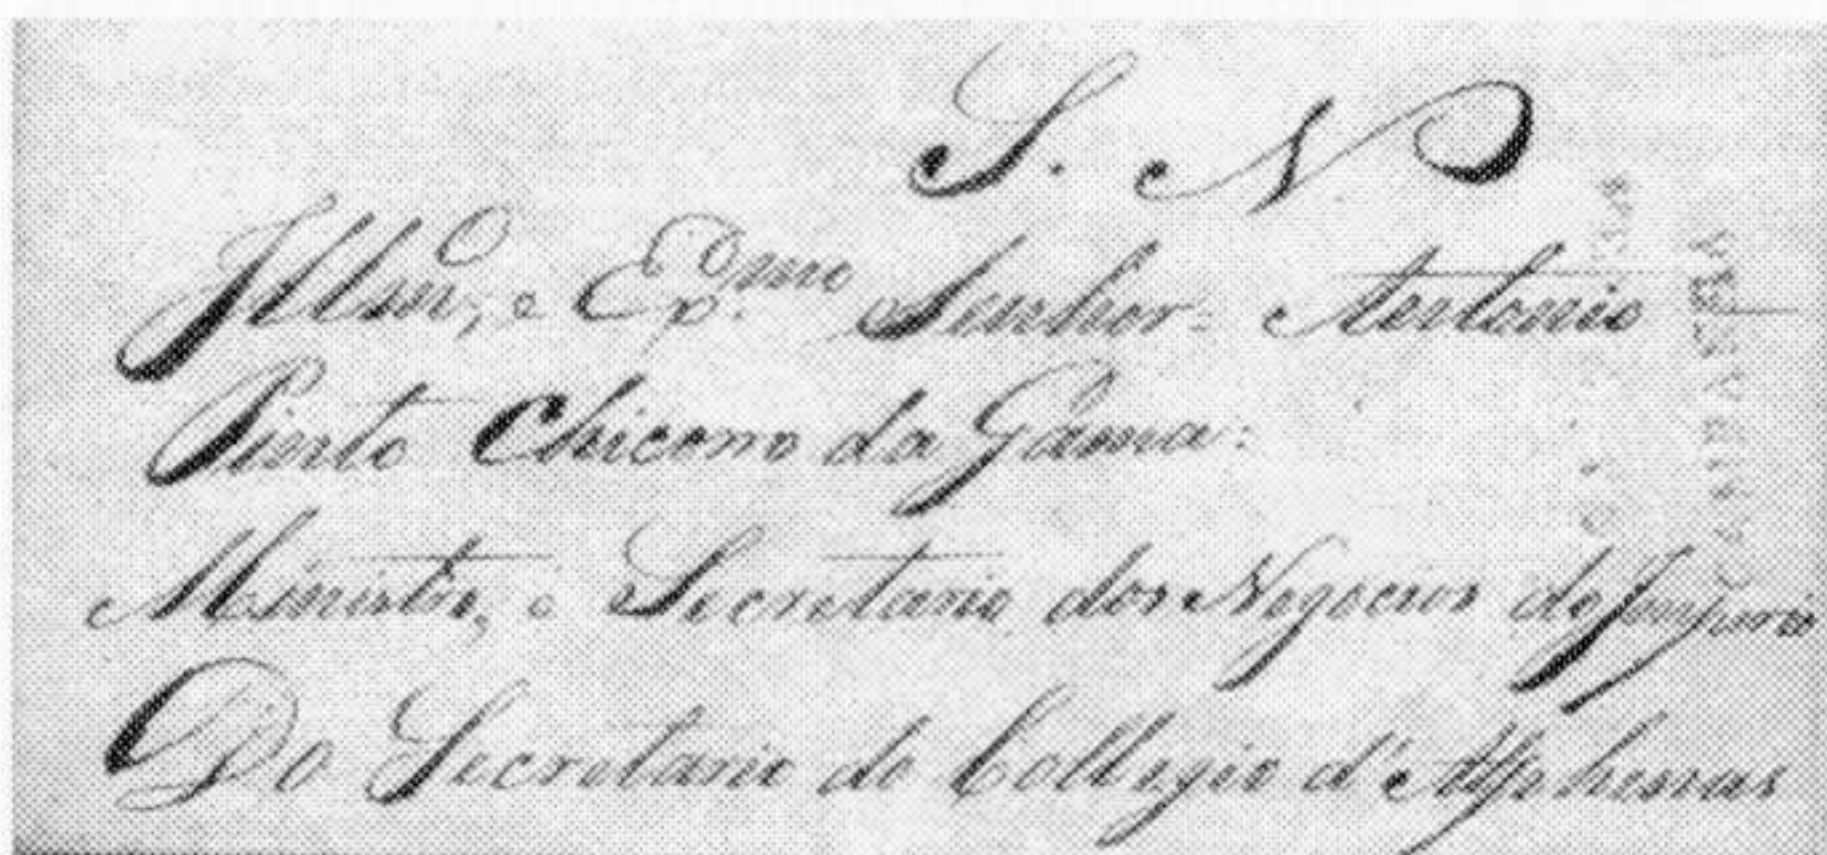 S. N
Illmº, e Exmo. Senhor: Antonio
Pinto Chicorro da Gama:
Ministro, e Secretario dos Negocios do Imperio
Do Secretario do Collegio d'Alphenas